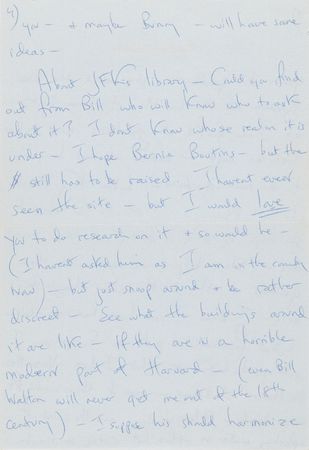 4) you - + maybe Bunny - will have some
ideas -
About JFKs library - Could you find
out from Bill who will know who to ask
about it? I dont know whose realm it is
under - I hope Bernie Boutins - but the
$ still has to be raised. I havent ever
seen the site - but I would love
you to do research on it + so would he -
(I havent asked him as I am in the country
now) - but just snoop around + be rather
discreet - See what the buildings around
it are like - If they are in a horrible
modern part of Harvard - (even Bill
Walton will never get me out of the 18th
century) - I suppose his should harmonize